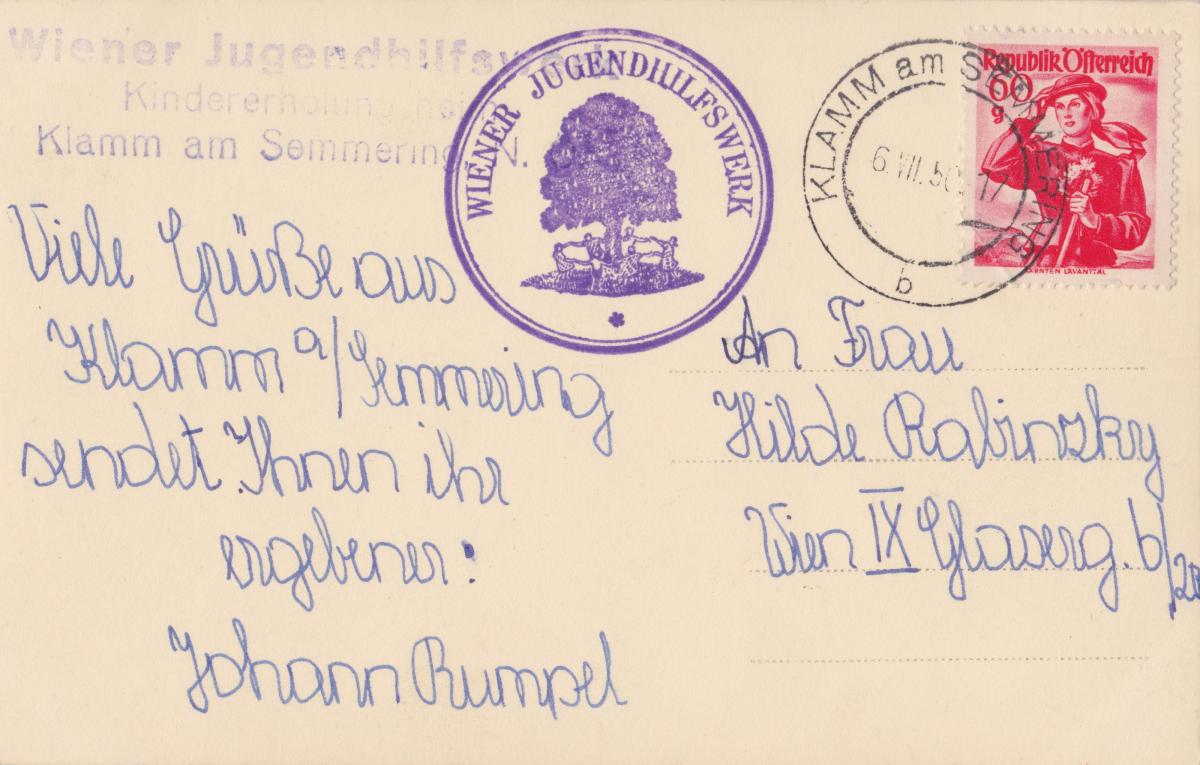 Wiener Jugendhilfswerk
Kindererholungsheim
Klamm am Semmering N.
WIENER JUGENDHILFSWERK
KLAMM am SEMMERING
6.VII.50 17
b
Republik Österreich
60
g
KÄRNTEN LAVANTTAL
Viele Grüße aus
Klamm a/Semmering
sendet Ihnen ihr
ergebener:
Johann Rumpel
An Frau
Hilde Rabinzky
Wien IX Glaserg. 6/20